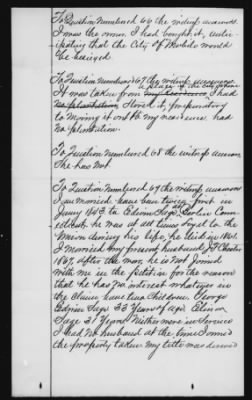 To Question Numbered 66 the widow answers
I was the owner I had bought it, antici-
pating that the City of Mobile would
be besieged.
To Question Numbered 67 the widow answers
It was taken from I had
no plantation Stored it, preparatory
to moving it out to my residence had
no plantation.
To Question Numbered 68 the widow answers
She has not.
To Question Numbered 69 the widow answers
I am married have been twice, first in
Jany 1843 to Edwin Sage, Berlin Conn-
ecticut he was at all times loyal to the
Union during his life, he died in 1861
I married my present husband J. Chester
1867, after the war, he is not Joined
with me in the petition for the reason
that he has no interest whatever in
the claim have two Children. George
Edwin Sage 33 Years of age,
Sage 31 Years Neither were in Service
I had no husband at the time I owned
the property taken my title was derived